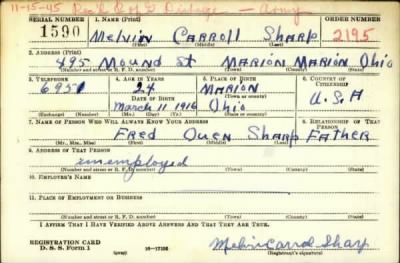 11-15-45 Rec'd of Discharge — Army
SERIAL NUMBER 1. NAME (Print) ORDER NUMBER
1590 Melvin Carroll Sharp 2195
(First) (Middle) (Last)
2. ADDRESS (Print)
495 Mound St Marion Marion Ohio
(Number and street or R. F. D. number) (Town) (County) (State)
3. TELEPHONE 4. AGE IN YEARS 5. PLACE OF BIRTH 6. COUNTRY OF CITIZENSHIP
6951 24 Marion
DATE OF BIRTH (Town or county)
March 11 1916 Ohio U.S.A
(Exchange) (Number) (Mo.) (Day) (Yr.) (State or country)
7. NAME OF PERSON WHO WILL ALWAYS KNOW YOUR ADDRESS 8. RELATIONSHIP OF THAT PERSON
Fred Owen Sharp Father
(Mr., Mrs., Miss) (First) (Middle) (Last)
9. ADDRESS OF THAT PERSON
unemployed
(Number and street or R. F. D. number) (Town) (County) (State)
10. EMPLOYER'S NAME
11. PLACE OF EMPLOYMENT OR BUSINESS
(Number and street or R. F. D. number) (Town) (County) (State)
I AFFIRM THAT I HAVE VERIFIED ABOVE ANSWERS AND THAT THEY ARE TRUE.
REGISTRATION CARD
D. S. S. Form 1 (over) 16-17105 Melvin Carrol Sharp
(Registrant's signature)